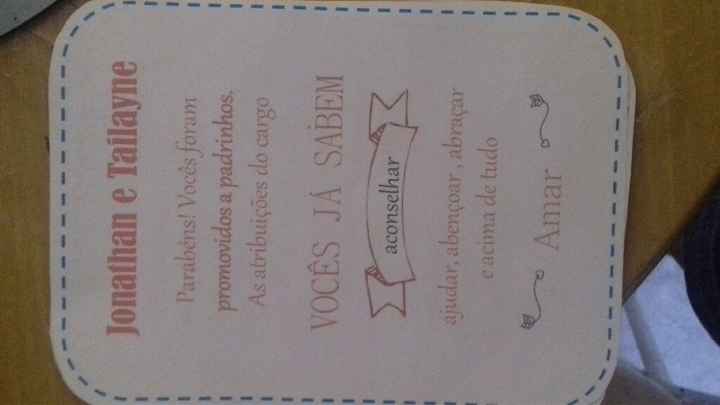 Jonathan e Tailayne
Parabéns! Vocês foram
promovidos a padrinhos.
As atribuições do cargo
VOCÊS JÁ SABEM
aconselhar
ajudar, abençoar , abraçar
e acima de tudo
Amar